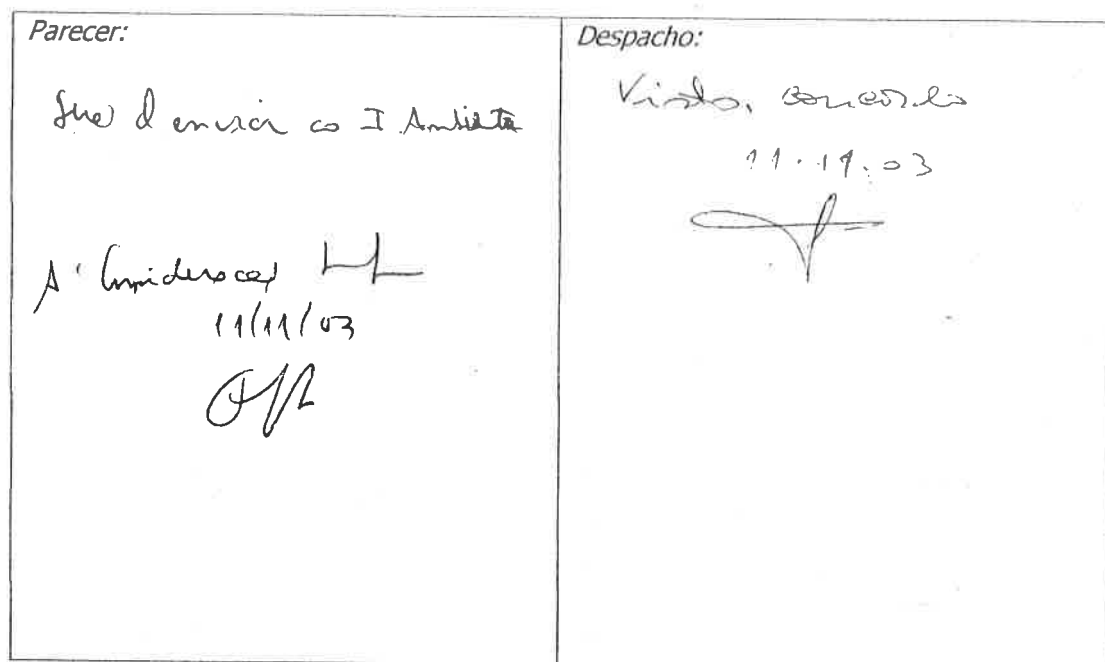 Parecer:
enviar ao I Ambiente
À Consideração
11/11/03
Despacho:
Visto, concordo
11.11.03